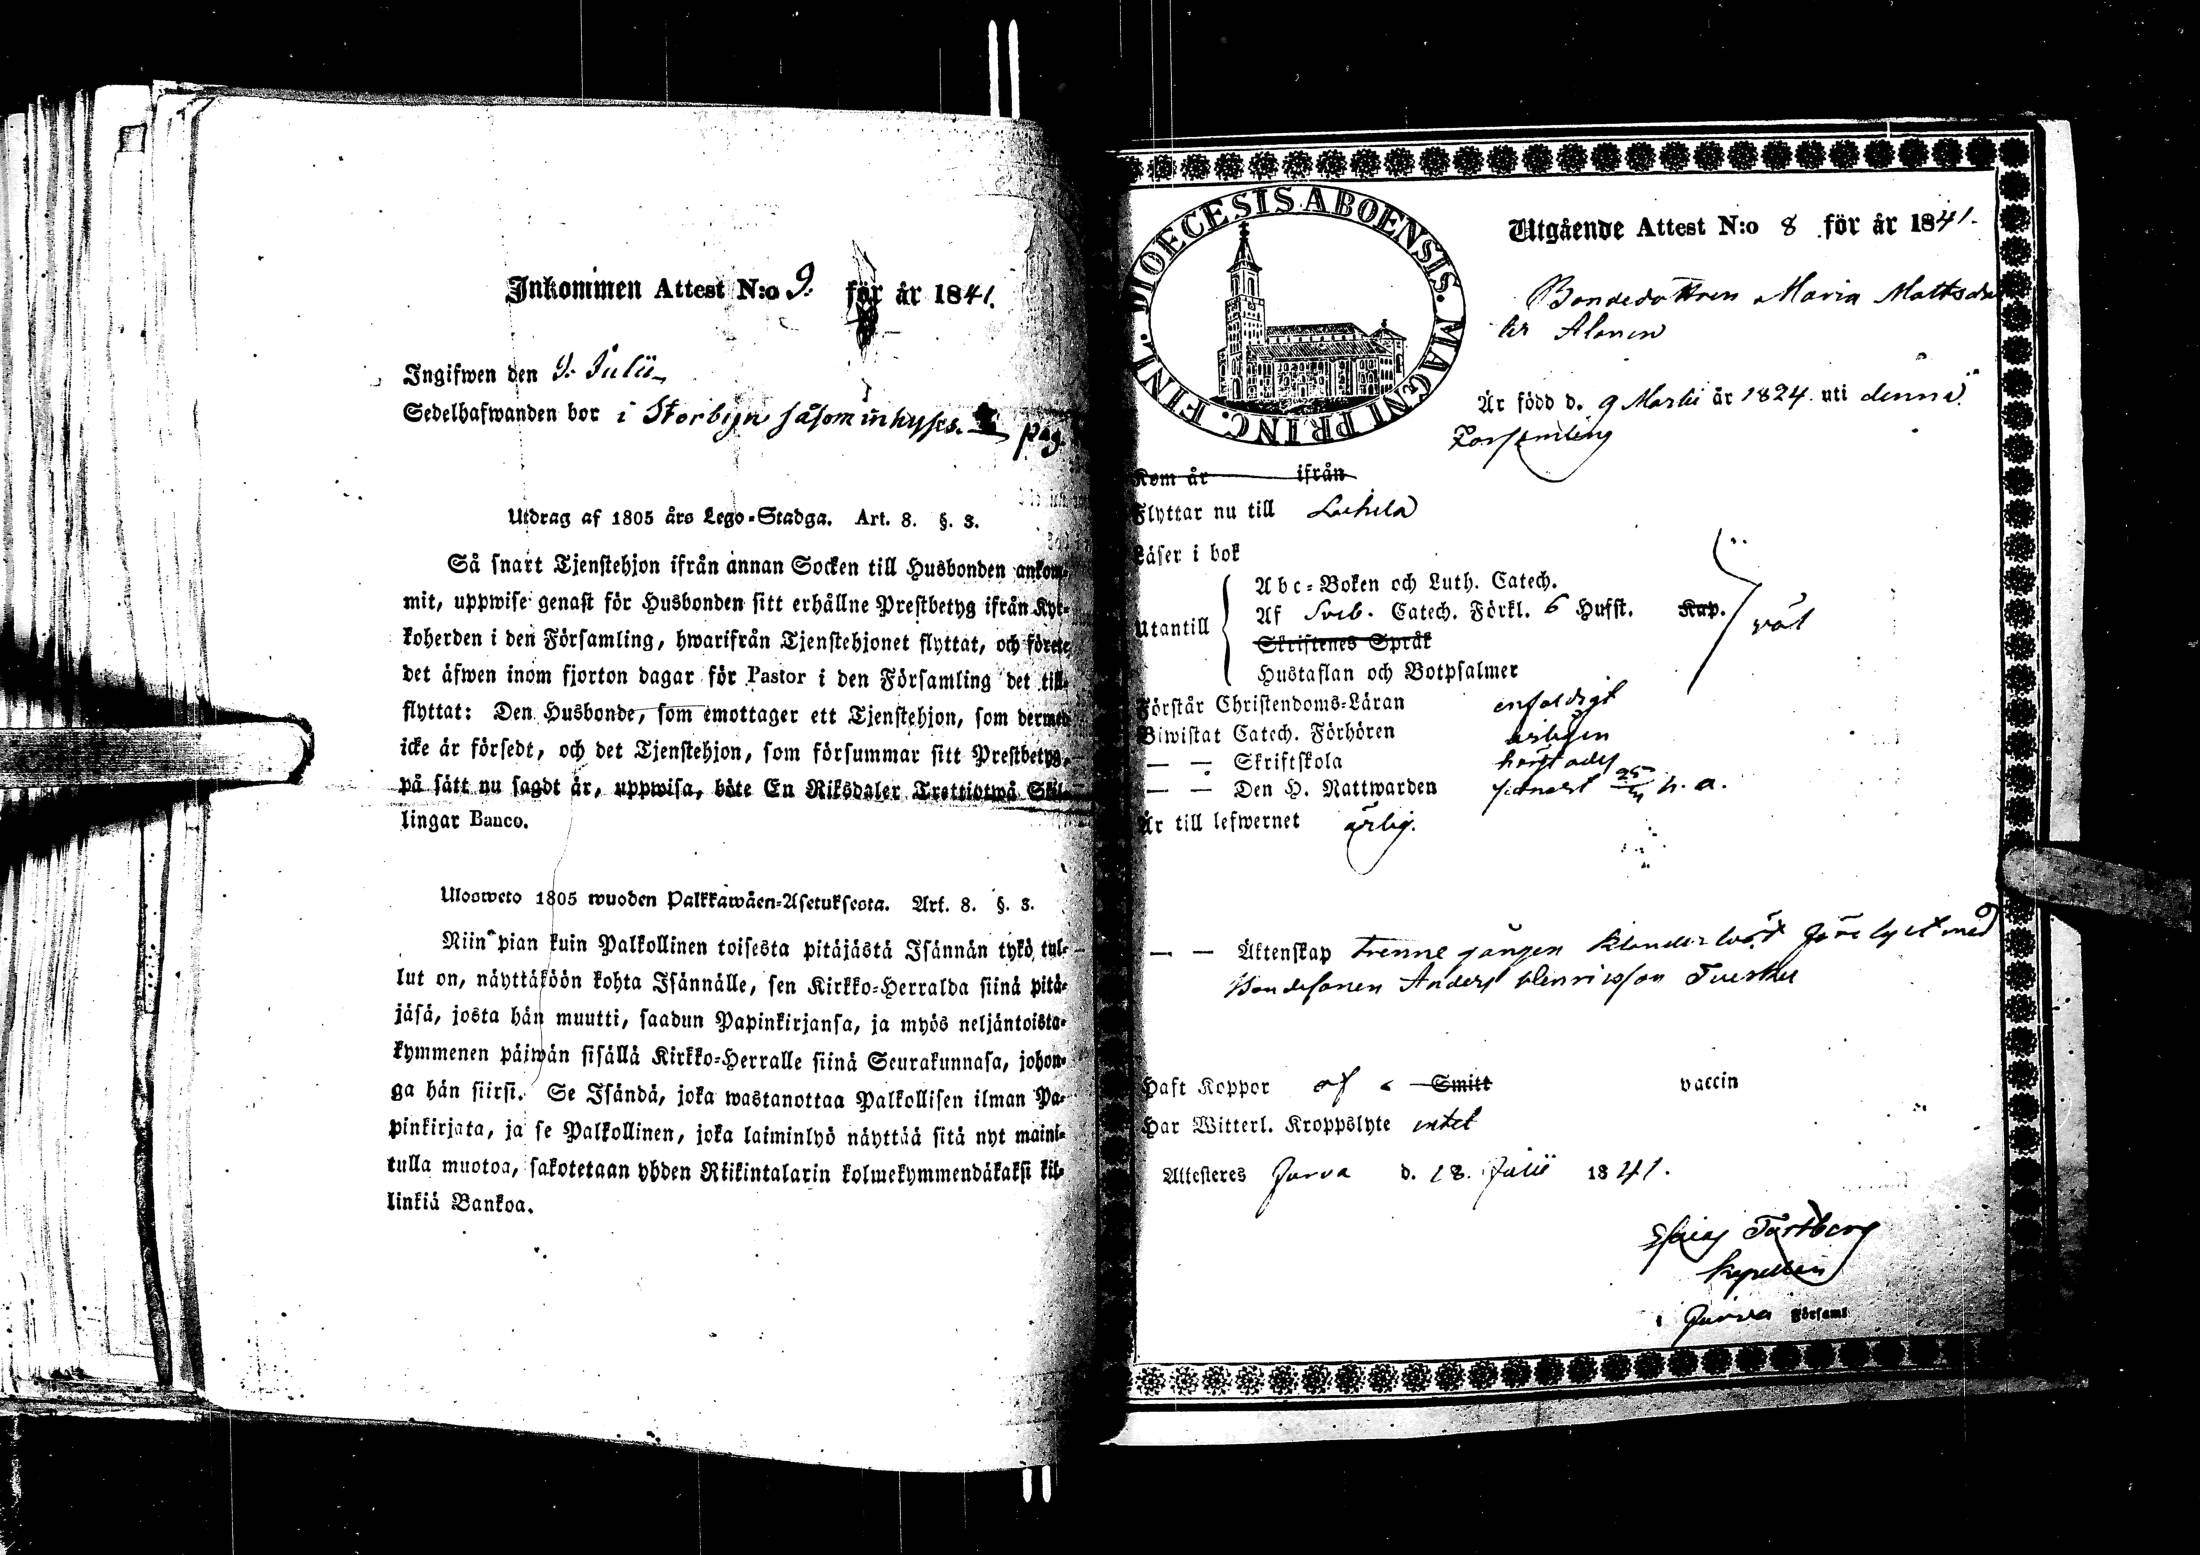 Inkommen Attest N:o 9. för år 1841.
Ingifwen den 9. Julii
Sedelhafwanden bor i Storbyn såsom inhyses. pag.
Utdrag af 1805 års Lego-Stadga. Art. 8. §. 3.
Så snart Tjenstehjon ifrån annan Socken till Husbonden ankom-
mit, uppwise genast för Husbonden sitt erhållne Prestbetyg ifrån Kyr-
koherden i den Församling, hwarifrån Tjenstehjonet flyttat, och förete
det äfwen inom fjorton dagar för Pastor i den Församling det till-
flyttat: Den Husbonde, som emottager ett Tjenstehjon, som dermed
icke är försedt, och det Tjenstehjon, som försummar sitt Prestbetyg,
på sätt nu sagdt är, uppwisa, böte En Riksdaler Trettiotwå Skil-
lingar Banco.
Ulosweto 1805 wuoden Palkkawäen-Asetuksesta. Art. 8. §. 3.
Niin pian kuin Palkollinen toisesta pitäjästä Isännän tykö tul-
lut on, näyttäköön kohta Isännälle, sen Kirkko-Herralda siinä pitä-
jäsä, josta hän muutti, saadun Papinkirjansa, ja myös neljäntoista-
kymmenen päiwän sisällä Kirkko-Herralle siinä Seurakunnasa, johon-
ga hän siirsi. Se Isändä, joka wastanottaa Palkollisen ilman Pa-
pinkirjata, ja se Palkollinen, joka laiminlyö näyttää sitä nyt maini-
tulla muotoa, sakotetaan yhden Riikintalarin kolmekymmendäkaksi kil-
linkiä Bankoa.
DIOECESIS ABOENSIS. MAGNI PRINC. FINL.
Utgående Attest N:o 8 för år 1841.
Bondedottren Maria Mattsdot
ter Alanen
Är född d. 9 Martii år 1824. uti denna
Församling
Kom år ifrån
Flyttar nu till
Läser i bok
Abc-Boken och Luth. Catech.
Utantill Af Sveb. Catech. Förkl. 6 Hufst. Kap. väl
Skriftenes Språk
Hustaflan och Botpsalmer
Förstår Christendoms-Läran enfaldigt
Biwistat Catech. Förhören årligen
— — Skriftskola
— — Den H. Nattwarden senast 25/4 h. a.
Är till lefwernet ärlig.
— — Äktenskap trenne gånger förlyst med
Bondesonen Anders Henricsson
Haft Koppor af Smitt vaccin
Har Witterl. Kroppslyte intet
Attesteres Jurva d. 18. Julii 1841.
i Jurva Församl